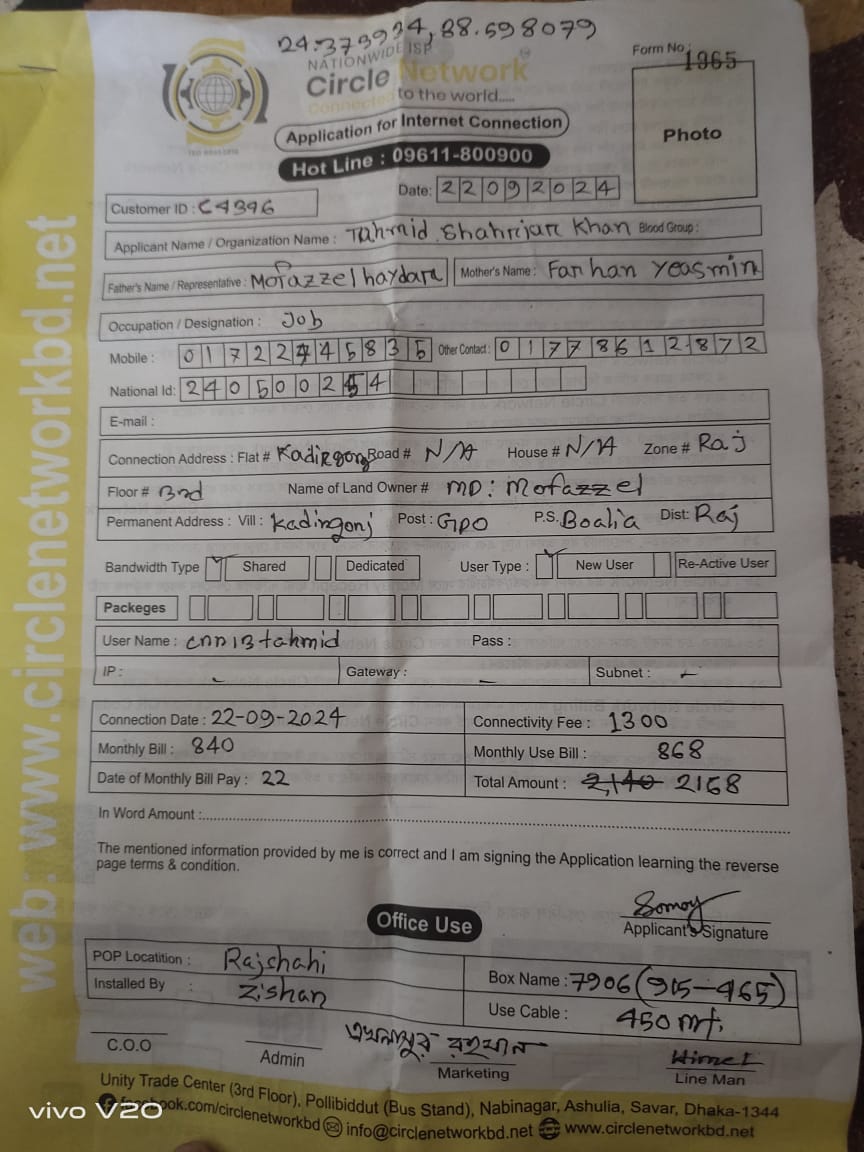 24.373934, 88.598079
NATIONWIDE ISP
Circle Network
Connected to the world.....
Form No: 1365
Application for Internet Connection
Hot Line : 09611-800900
Photo
Date: 22092024
Customer ID : C4396
Applicant Name / Organization Name : Tahmid Shahrijar Khan Blood Group :
Father's Name / Representative : Mofazzel haydar Mother's Name : Farhan Yeasmin
Occupation / Designation : Job
Mobile : 01722445835 Other Contact : 01778612872
National Id: 2405002
E-mail :
Connection Address : Flat # Kadirgonj Road # N/A House # N/A Zone # Raj
Floor # 3rd Name of Land Owner # MD: Mofazzel
Permanent Address : Vill : Kadirgonj Post : GPO P.S. Boalia Dist: Raj
Bandwidth Type Shared Dedicated User Type : New User Re-Active User
Packeges
User Name : cnn13tahmid Pass :
IP : - Gateway : - Subnet : -
Connection Date : 22-09-2024 Connectivity Fee : 1300
Monthly Bill : 840 Monthly Use Bill : 868
Date of Monthly Bill Pay : 22 Total Amount : 2,140 2168
In Word Amount :
The mentioned information provided by me is correct and I am signing the Application learning the reverse
page terms & condition.
Somoy
Applicant's Signature
Office Use
POP Locatition : Rajshahi Box Name : 7906 (915-465)
Installed By : Zishan Use Cable : 450 mt.
রহমান Himel
C.O.O Admin Marketing Line Man
Unity Trade Center (3rd Floor), Pollibiddut (Bus Stand), Nabinagar, Ashulia, Savar, Dhaka-1344
facebook.com/circlenetworkbd info@circlenetworkbd.net www.circlenetworkbd.net
web: www.circlenetworkbd.net
vivo V20